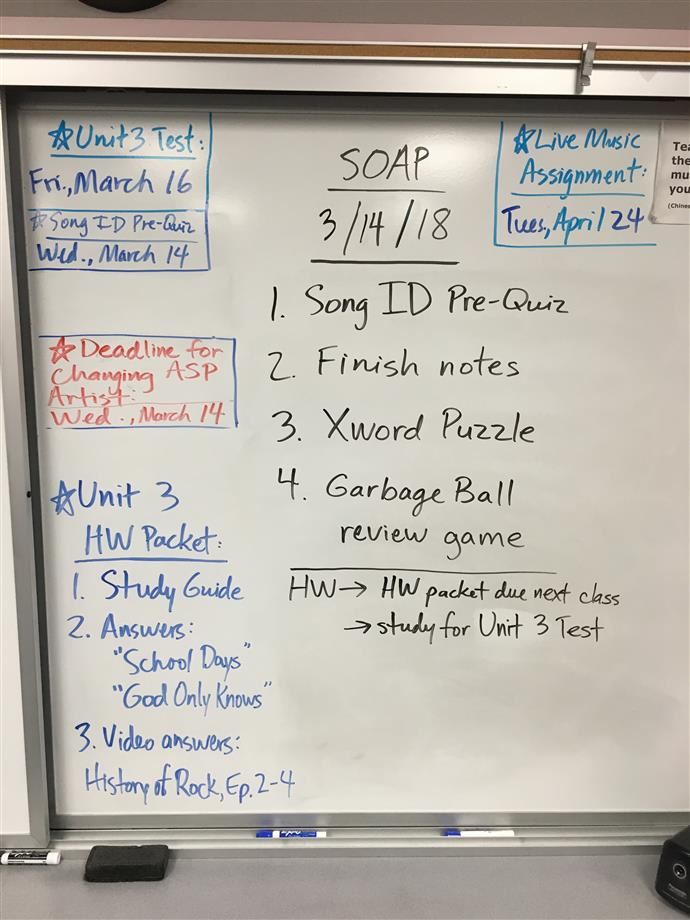 ☆Unit 3 Test:
Fri., March 16
☆Song ID Pre-Quiz
Wed., March 14
☆Deadline for
Changing ASP
Artist:
Wed., March 14
☆Unit 3
HW Packet:
1. Study Guide
2. Answers:
"School Days"
"God Only Knows"
3. Video answers:
History of Rock, Ep. 2-4
SOAP
3/14/18
1. Song ID Pre-Quiz
2. Finish notes
3. Xword Puzzle
4. Garbage Ball
review game
HW → HW packet due next class
→ study for Unit 3 Test
☆Live Music
Assignment:
Tues., April 24
Tea
the
mu
you
(Chines